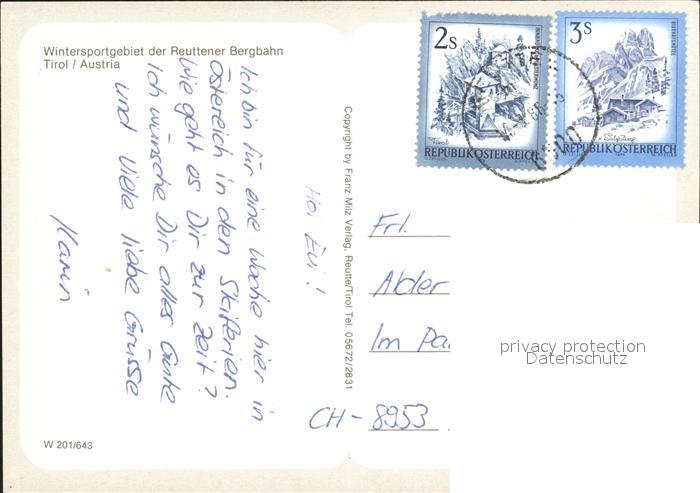 Wintersportgebiet der Reuttener Bergbahn
Tirol / Austria
Hoi Evi!
Ich bin für eine Woche hier in
Östereich in den Skiferien.
Wie geht es Dir zur Zeit?
Ich wünsche Dir alles Gute
und viele liebe Grüsse
Karin
W 201/643
Copyright by Franz Milz Verlag, Reutte/Tirol Tel. 05672/2831
2S
REPUBLIK ÖSTERREICH
3S
REPUBLIK ÖSTERREICH
Frl.
Alder
Im Pa
CH-8953
privacy protection
Datenschutz